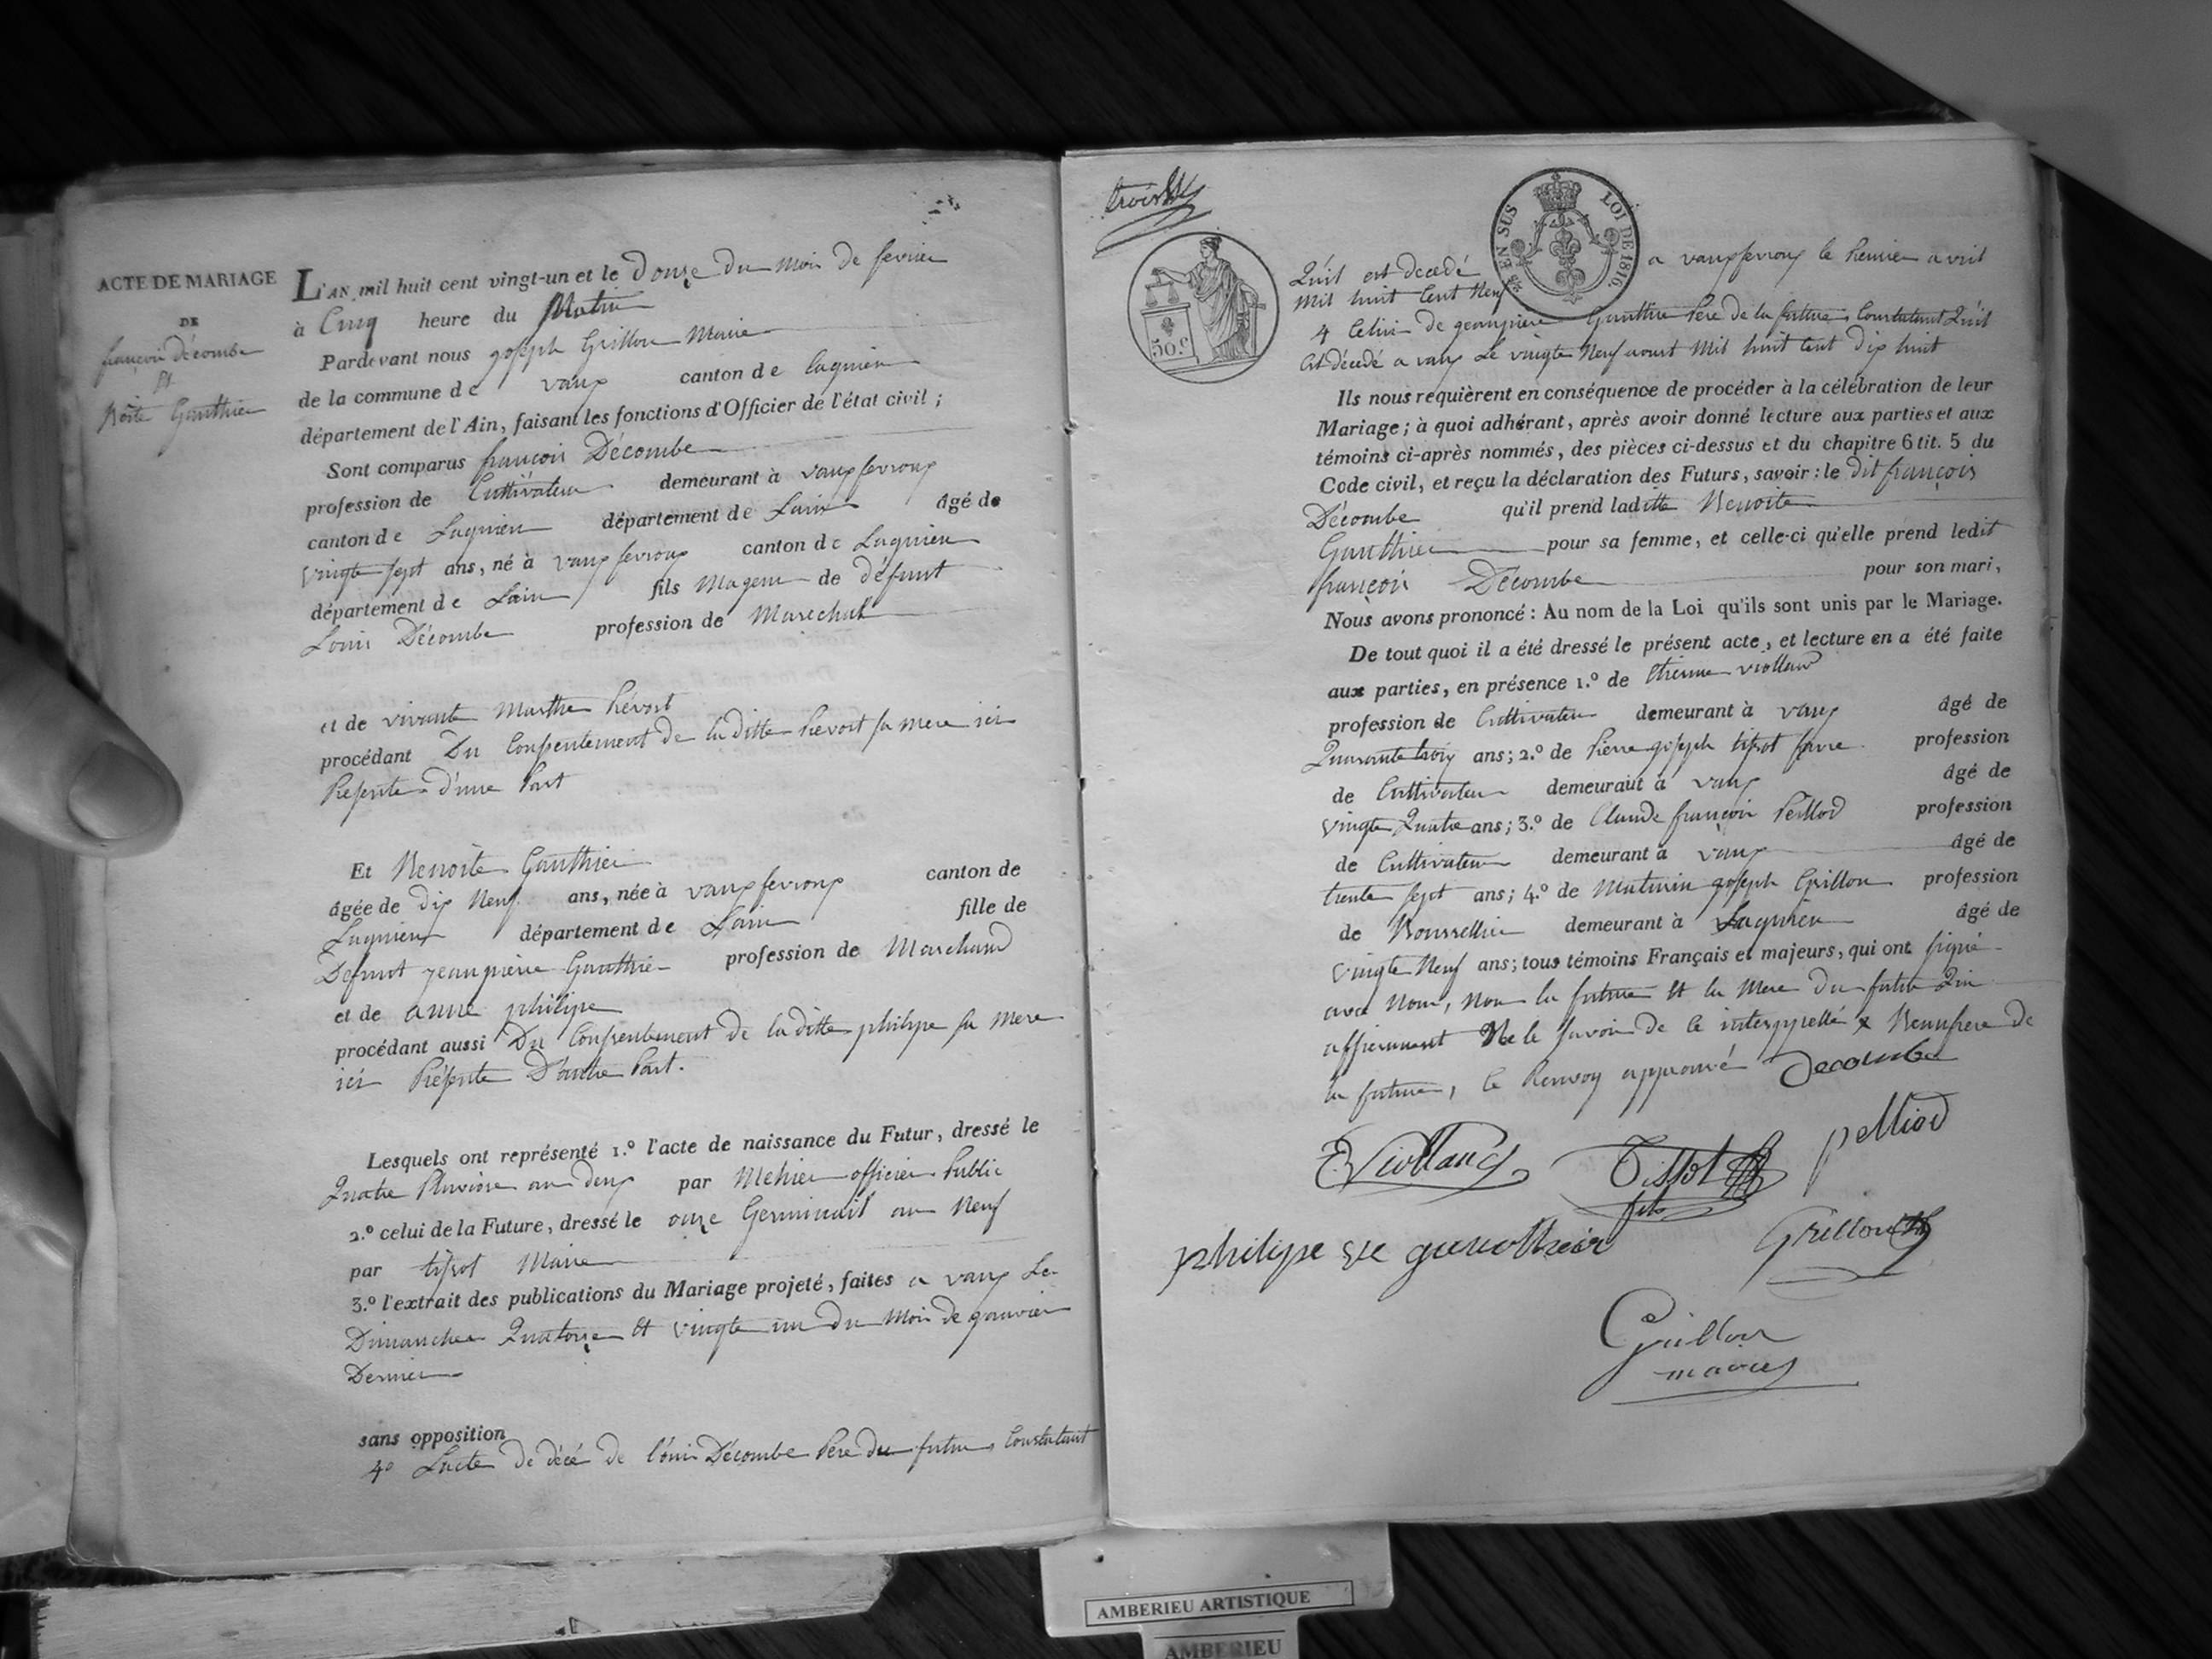 ACTE DE MARIAGE
DE
françois Décombe
Et
Benoite Gauthier
L'AN mil huit cent vingt-un et le Douze du mois de fevrier
à Cinq heure du Matin
Pardevant nous joseph Grillon Maire
de la commune de vaux canton de lagnieu
département de l'Ain, faisant les fonctions d'Officier de l'état civil ;
Sont comparus françois Décombe
profession de Cultivateur demeurant à vauxfevroux
canton de Lagnieu département de Lain âgé de
vingte sept ans, né à vaux fevroux canton de Lagnieu
département de Lain fils Mageur de défunt
Louis Décombe profession de Marechal
et de vivante Marthe Prévost
procédant Du Consentement de la ditte Prevost sa mere ici
Présente d'une Part
Et Benoite Gauthier
âgée de dix Neuf ans, née à vauxfevroux canton de
Lagnieu département de Lain fille de
Defunt jeanpierre Gauthier profession de Marchand
et de anne philipe
procédant aussi Du Consentement de la ditte philipe sa mere
ici Présente D'autre Part.
Lesquels ont représenté 1.º l'acte de naissance du Futur, dressé le
Quatre Pluviose an deux par Mehier officier Public
2.º celui de la Future, dressé le onze Germinail an Neuf
par tissot Maire
3.º l'extrait des publications du Mariage projeté, faites a vaux Le
Dimanche Quatorze Et vingte un du Mois de janvier
Dernier
sans opposition
4º Lacte de décé de Louis Décombe Pere du futur, Constatant
trois
Quil est decedé a vauxfevroux le Premier avril
mil huit Cent Neuf
4 Celui de jeanpierre Gauthier Pere de la future, Constatant Quil
Est décedé a vaux Le vingte Neuf aoust Mil huit Cent Dix huit
TIMBRE EN SUS LOI DE 1816.
50.c
Ils nous requièrent en conséquence de procéder à la célébration de leur
Mariage ; à quoi adhérant, après avoir donné lecture aux parties et aux
témoins ci-après nommés, des pièces ci-dessus et du chapitre 6 tit. 5 du
Code civil, et reçu la déclaration des Futurs, savoir : le dit françois
Décombe qu'il prend laditte Benoite
Gauthier pour sa femme, et celle-ci qu'elle prend ledit
françois Décombe pour son mari,
Nous avons prononcé : Au nom de la Loi qu'ils sont unis par le Mariage.
De tout quoi il a été dressé le présent acte, et lecture en a été faite
aux parties, en présence 1.º de Etienne violland
profession de Cultivateur demeurant à vaux âgé de
Quarante trois ans ; 2.º de Pierre joseph tissot profession
de Cultivateur demeurant à vaux âgé de
vingte Quatre ans ; 3.º de Claude françois Pelliod profession
de Cultivateur demeurant à vaux âgé de
trente sept ans ; 4.º de Maturin joseph Grillon profession
de Bourrellier demeurant à Lagnieu âgé de
vingte Neuf ans ; tous témoins Français et majeurs, qui ont signé
avec nous, non la future Et la Mere Du futur Qui
affirment Ne le savoir de Ce interppellé x Beaufrere de
la future, le Renvoy approuvé Decombe
E Violland Tissot fils pelliod
philipe ve gueuothier Grillon
Grillon
maire
AMBERIEU ARTISTIQUE
AMBERIEU